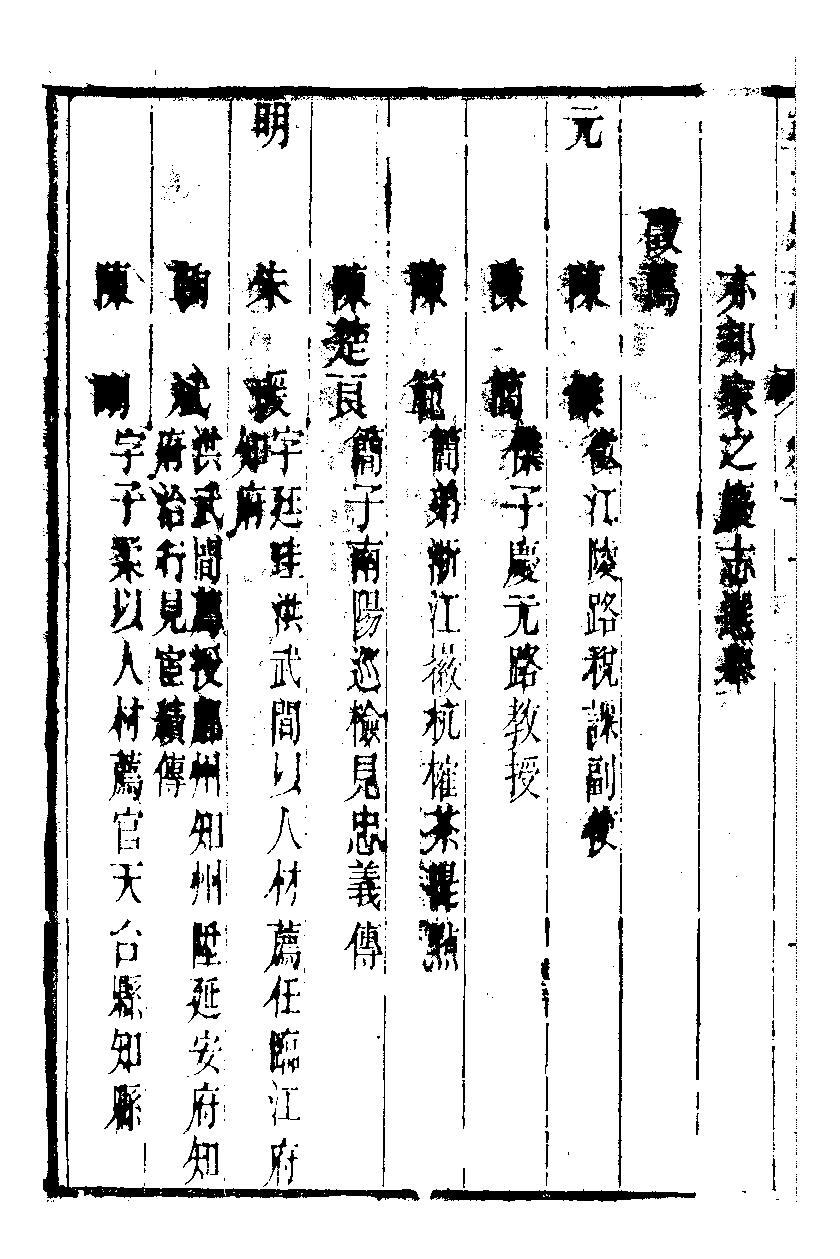 亦邦家之慶志選舉
徵薦
元
陳 傑 徵江陵路稅課副使
陳 簡 傑子慶元路教授
陳 範 簡弟浙江徽杭榷茶提點
陳楚良 簡子南陽巡檢見忠義傳
明
朱 瑗 字廷珪洪武間以人材薦任臨江府
知府
斌 洪武間薦授鄜州知州陞延安府知
府治行見宦績傳
陳 剛 字子柔以人材薦官天台縣知縣